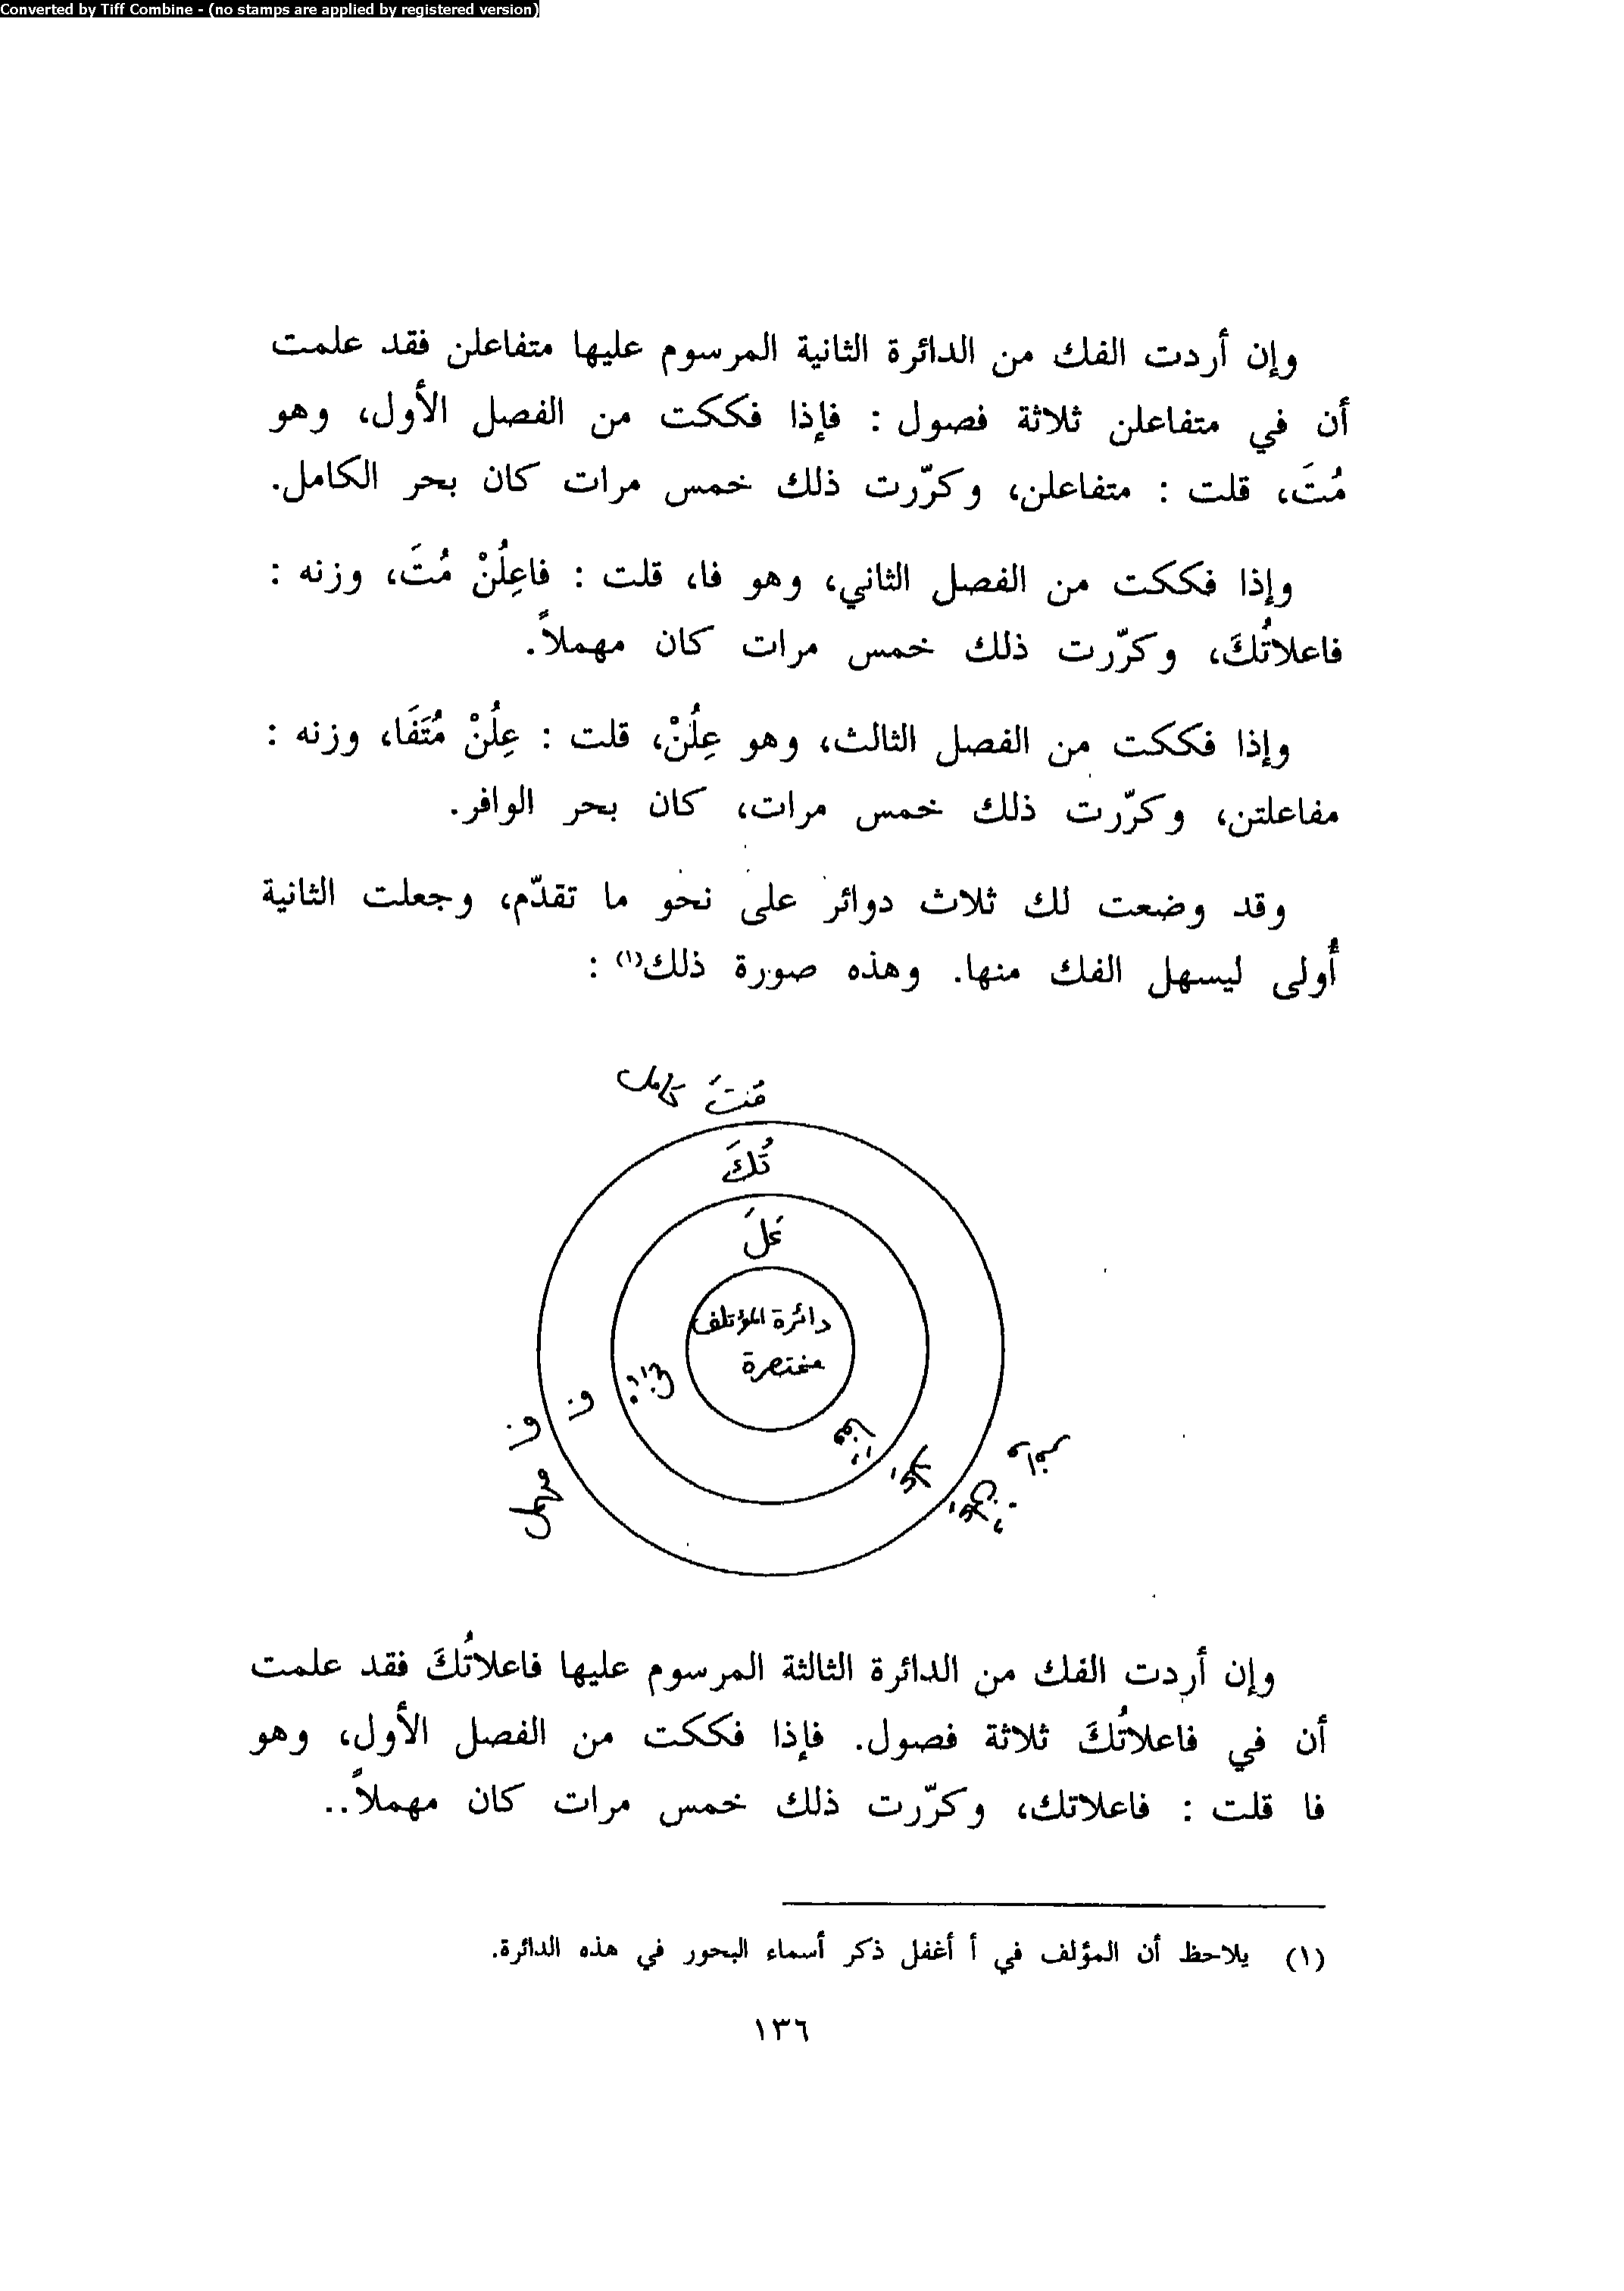 Converted by Tiff Combine - (no stamps are applied by registered version)
وإن أردت الفك من الدائرة الثانية المرسوم عليها متفاعلن فقد علمت
أن في متفاعلن ثلاثة فصول : فإذا فككت من الفصل الأول، وهو
مُتَ، قلت : متفاعلن، وكرّرت ذلك خمس مرات كان بحر الكامل.
وإذا فككت من الفصل الثاني، وهو فا، قلت : فاعِلُنْ مُتَ، وزنه :
فاعلاتُكَ، وكرّرت ذلك خمس مرات كان مهملاً.
وإذا فككت من الفصل الثالث، وهو عِلُنْ، قلت : عِلُنْ مُتَفَا، وزنه :
مفاعلتن، وكرّرت ذلك خمس مرات، كان بحر الوافر.
وقد وضعت لك ثلاث دوائر على نحو ما تقدّم، وجعلت الثانية
أُولى ليسهل الفك منها. وهذه صورة ذلك(١) :
مُتَ كامل
تُكَ
عَلَ
دائرة المؤتلف
مختصرة
تن
فا
فا
مهمل
مفا
علا
وافر
وإن أردت الفك من الدائرة الثالثة المرسوم عليها فاعلاتُكَ فقد علمت
أن في فاعلاتُكَ ثلاثة فصول. فإذا فككت من الفصل الأول، وهو
فا قلت : فاعلاتك، وكرّرت ذلك خمس مرات كان مهملاً..
(١) يلاحظ أن المؤلف في أ أغفل ذكر أسماء البحور في هذه الدائرة.
١٣٦